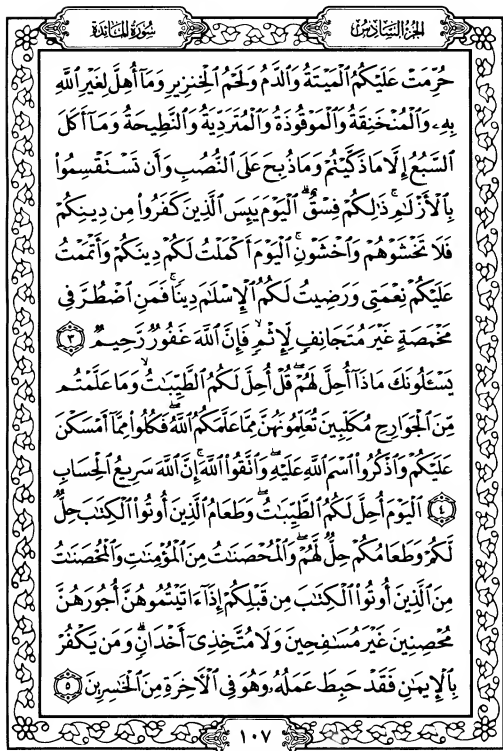 سُورَةُ المَائِدَةِ
الجُزءُ السَّادِسُ
حُرِّمَتۡ عَلَيۡكُمُ ٱلۡمَيۡتَةُ وَٱلدَّمُ وَلَحۡمُ ٱلۡخِنزِيرِ وَمَآ أُهِلَّ لِغَيۡرِ ٱللَّهِ
بِهِۦ وَٱلۡمُنۡخَنِقَةُ وَٱلۡمَوۡقُوذَةُ وَٱلۡمُتَرَدِّيَةُ وَٱلنَّطِيحَةُ وَمَآ أَكَلَ
ٱلسَّبُعُ إِلَّا مَا ذَكَّيۡتُمۡ وَمَا ذُبِحَ عَلَى ٱلنُّصُبِ وَأَن تَسۡتَقۡسِمُواْ
بِٱلۡأَزۡلَٰمِۚ ذَٰلِكُمۡ فِسۡقٌۗ ٱلۡيَوۡمَ يَئِسَ ٱلَّذِينَ كَفَرُواْ مِن دِينِكُمۡ
فَلَا تَخۡشَوۡهُمۡ وَٱخۡشَوۡنِۚ ٱلۡيَوۡمَ أَكۡمَلۡتُ لَكُمۡ دِينَكُمۡ وَأَتۡمَمۡتُ
عَلَيۡكُمۡ نِعۡمَتِي وَرَضِيتُ لَكُمُ ٱلۡإِسۡلَٰمَ دِينٗاۚ فَمَنِ ٱضۡطُرَّ فِي
مَخۡمَصَةٍ غَيۡرَ مُتَجَانِفٖ لِّإِثۡمٖ فَإِنَّ ٱللَّهَ غَفُورٞ رَّحِيمٞ ٣
يَسۡـَٔلُونَكَ مَاذَآ أُحِلَّ لَهُمۡۖ قُلۡ أُحِلَّ لَكُمُ ٱلطَّيِّبَٰتُ وَمَا عَلَّمۡتُم
مِّنَ ٱلۡجَوَارِحِ مُكَلِّبِينَ تُعَلِّمُونَهُنَّ مِمَّا عَلَّمَكُمُ ٱللَّهُۖ فَكُلُواْ مِمَّآ أَمۡسَكۡنَ
عَلَيۡكُمۡ وَٱذۡكُرُواْ ٱسۡمَ ٱللَّهِ عَلَيۡهِۖ وَٱتَّقُواْ ٱللَّهَۚ إِنَّ ٱللَّهَ سَرِيعُ ٱلۡحِسَابِ
٤ ٱلۡيَوۡمَ أُحِلَّ لَكُمُ ٱلطَّيِّبَٰتُۖ وَطَعَامُ ٱلَّذِينَ أُوتُواْ ٱلۡكِتَٰبَ حِلّٞ
لَّكُمۡ وَطَعَامُكُمۡ حِلّٞ لَّهُمۡۖ وَٱلۡمُحۡصَنَٰتُ مِنَ ٱلۡمُؤۡمِنَٰتِ وَٱلۡمُحۡصَنَٰتُ
مِنَ ٱلَّذِينَ أُوتُواْ ٱلۡكِتَٰبَ مِن قَبۡلِكُمۡ إِذَآ ءَاتَيۡتُمُوهُنَّ أُجُورَهُنَّ
مُحۡصِنِينَ غَيۡرَ مُسَٰفِحِينَ وَلَا مُتَّخِذِيٓ أَخۡدَانٖۗ وَمَن يَكۡفُرۡ
بِٱلۡإِيمَٰنِ فَقَدۡ حَبِطَ عَمَلُهُۥ وَهُوَ فِي ٱلۡأٓخِرَةِ مِنَ ٱلۡخَٰسِرِينَ ٥
١٠٧